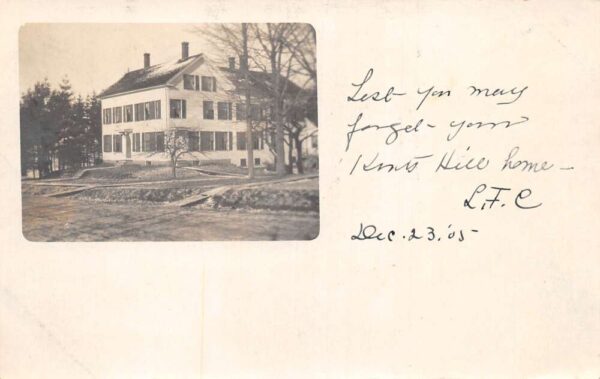 Lest you may
forget your
Kents Hill home —
L.F.C
Dec. 23. '05